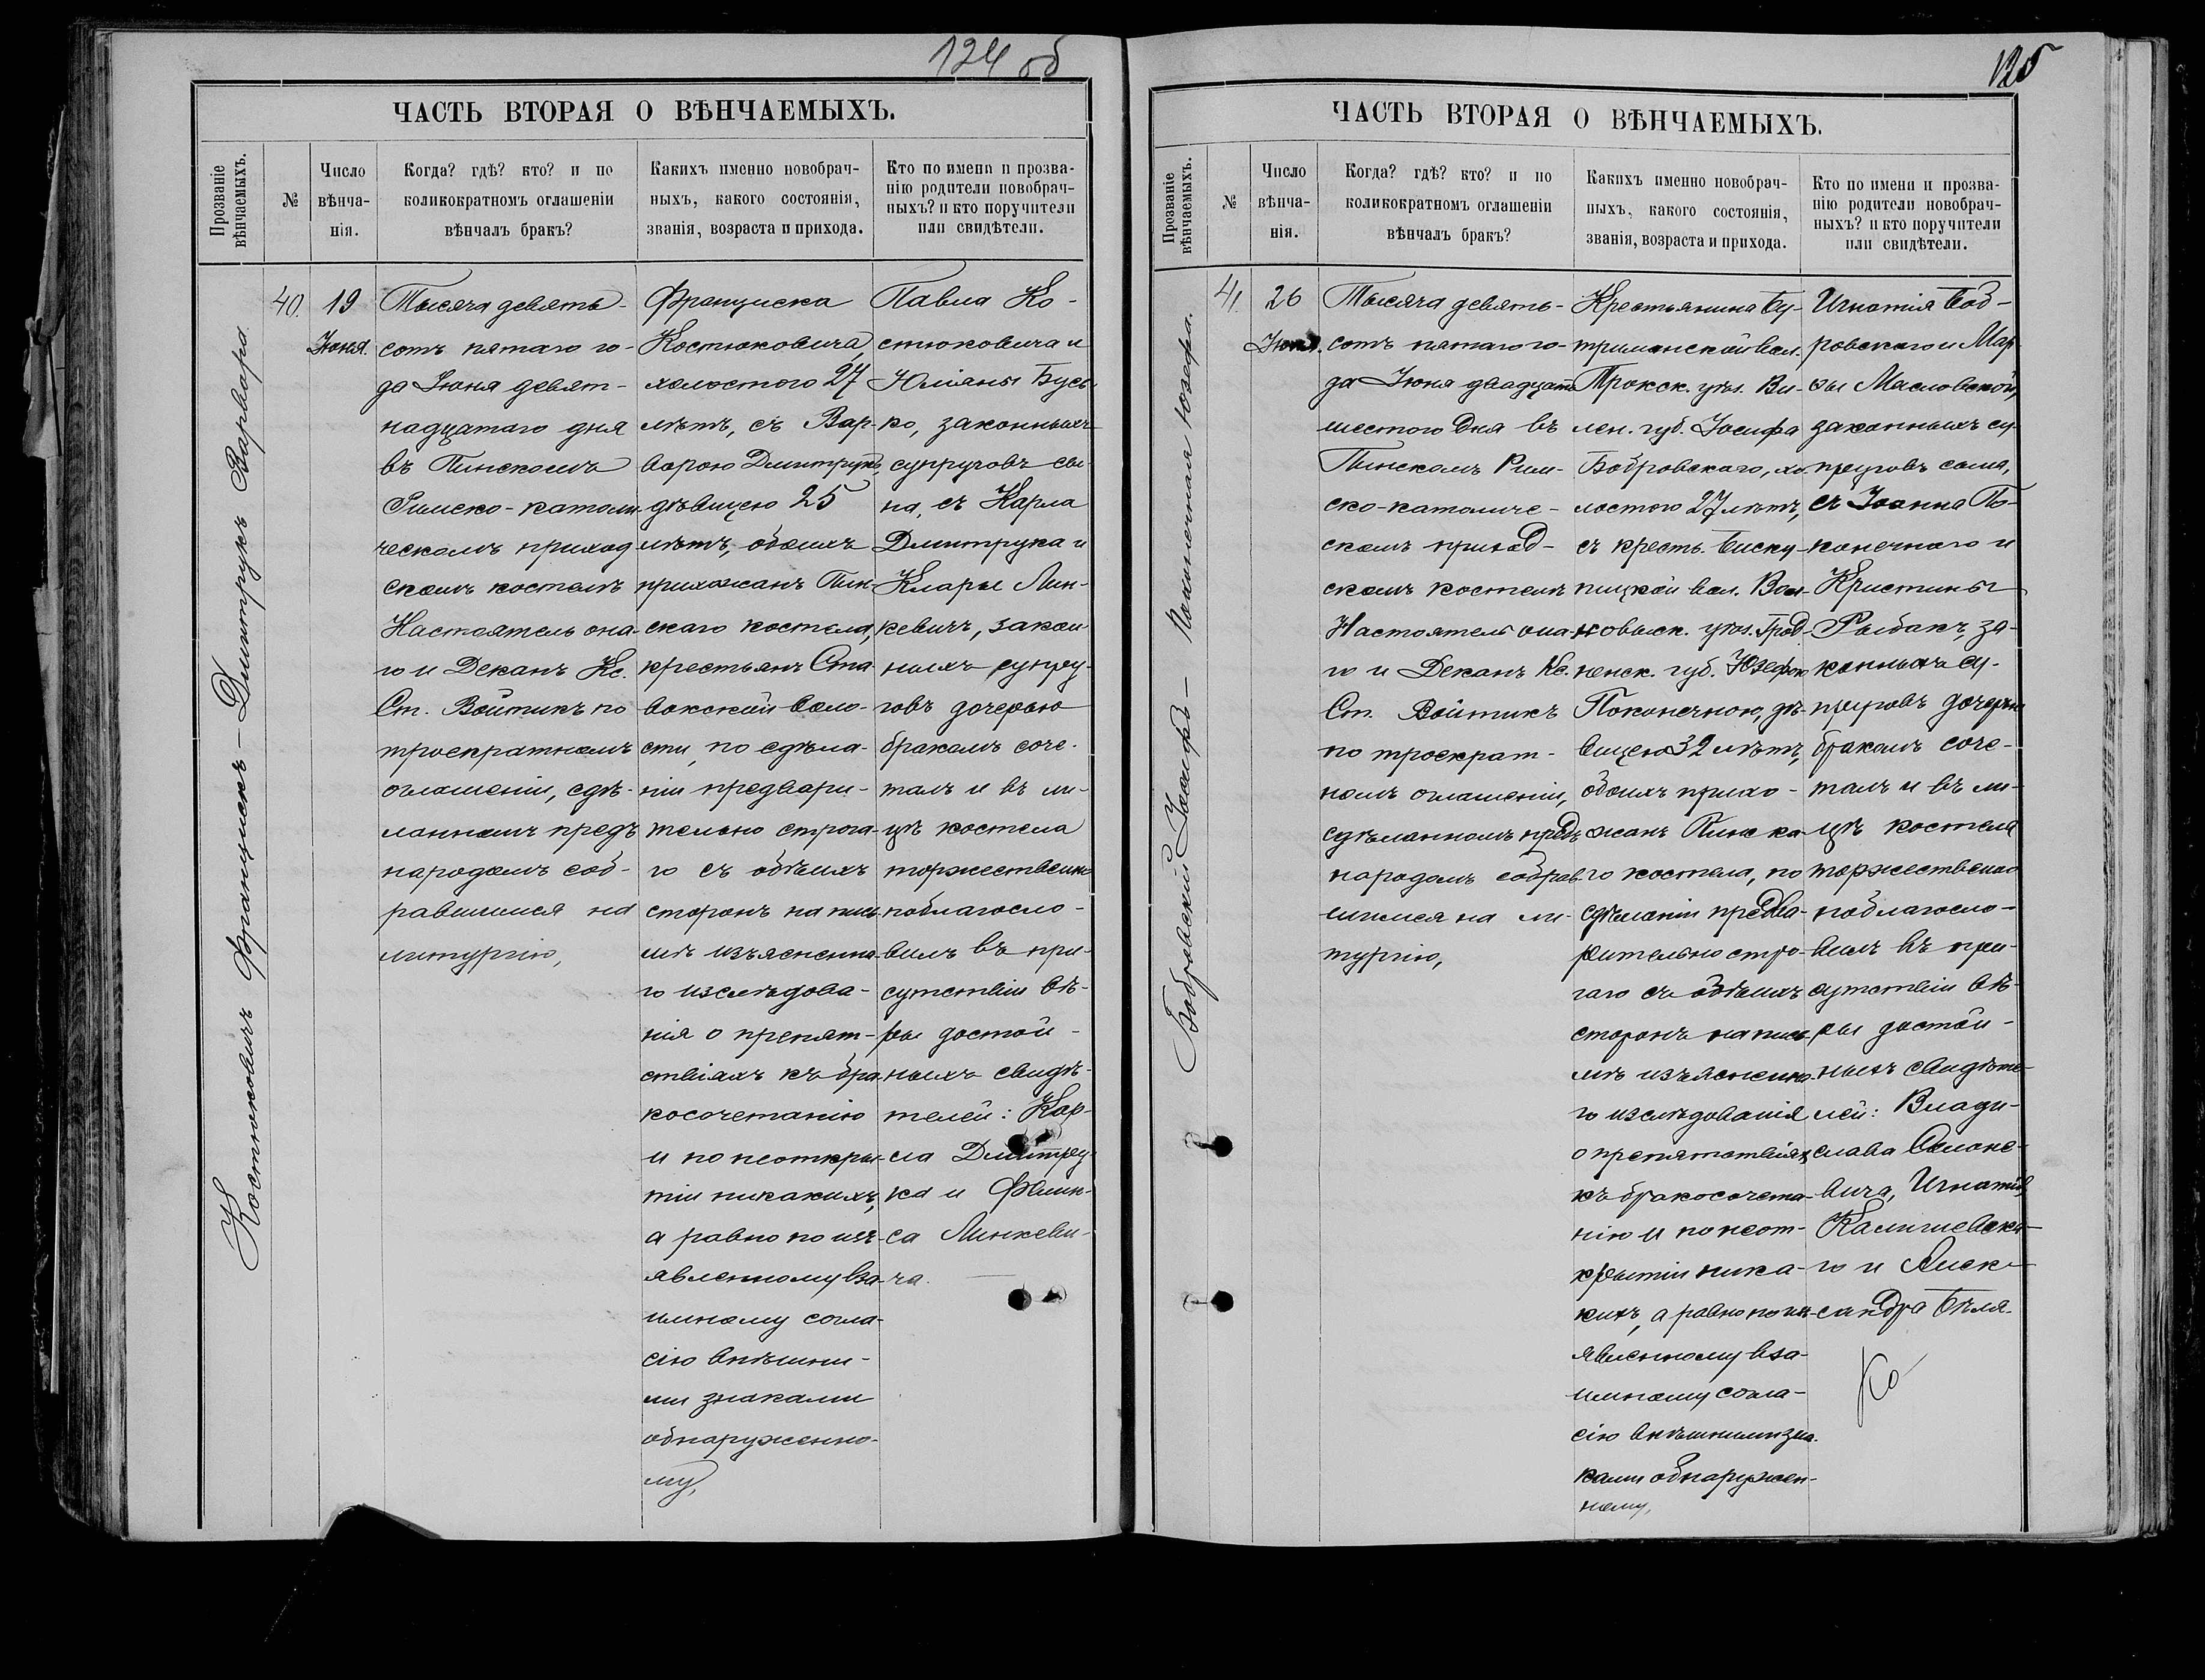 124 об
ЧАСТЬ ВТОРАЯ О ВѢНЧАЕМЫХЪ.
Прозваніе
вѣнчаемыхъ.
№
Число
вѣнча-
нія.
Когда? гдѣ? кто? и по
коликократномъ оглашеніи
вѣнчалъ бракъ?
Какихъ именно новобрач-
ныхъ, какого состоянія,
званія, возраста и прихода.
Кто по имени и прозва-
нію родители новобрач-
ныхъ? и кто поручители
или свидѣтели.
Костюковичъ Францискъ – Дмитрукъ Варвара.
40.
19
Іюня.
Тысяча девять-
сотъ пятаго го-
да Іюня девят-
надцатаго дня
въ Пинскомъ
Римско-католи-
ческомъ приход
скомъ костелѣ
Настоятель она-
го и Деканъ Кс.
Ст. Войтикъ по
троекратномъ
оглашеніи, сдѣ-
ланномъ предъ
народомъ соб-
равшимся на
литургію,
Франциска
Костюковича,
холостого 27
лѣтъ, съ Вар-
варою Дмитрукъ,
дѣвицею 25
лѣтъ, обоихъ
прихожанъ Пин-
скаго костела,
крестьянъ Ста-
вокской воло-
сти, по сдѣла-
ніи предвари-
тельно строга-
го съ обѣихъ
сторонъ на пись
мѣ изъясненна-
го изслѣдова-
нія о препят-
ствіяхъ къ бра-
косочетанію
и по неоткры-
тіи никакихъ,
а равно по изъ-
явленному вза-
имному согла-
сію внѣшни-
ми знаками
обнаруженно-
му,
Павла Ко-
стюковича и
Юліаны Бусь-
ко, законныхъ
супруговъ сы-
на, съ Карла
Дмитрука и
Клары Лин-
кевичъ, закон
ныхъ супру-
говъ дочерью
бракомъ соче-
талъ и въ ли-
цѣ костела
торжественно
поблагосло-
вилъ въ при-
сутствіи вѣ-
ры достой-
ныхъ свидѣ-
телей: Кар-
ла Дмитру-
ка и Феликса
Линкеви-
ча.
125
ЧАСТЬ ВТОРАЯ О ВѢНЧАЕМЫХЪ.
Прозваніе
вѣнчаемыхъ.
№
Число
вѣнча-
нія.
Когда? гдѣ? кто? и по
коликократномъ оглашеніи
вѣнчалъ бракъ?
Какихъ именно новобрач-
ныхъ, какого состоянія,
званія, возраста и прихода.
Кто по имени и прозва-
нію родители новобрач-
ныхъ? и кто поручители
или свидѣтели.
Бобровскій Іосифъ – Поконечная Юзефа.
41.
26
Іюня.
Тысяча девять-
сотъ пятаго го-
да Іюня двадцать
шестого дня въ
Пинскомъ Рим-
ско-католиче-
скомъ приход-
скомъ костелѣ
Настоятель она-
го и Деканъ Кс.
Ст. Войтикъ
по троекрат-
номъ оглашеніи,
сдѣланномъ предъ
народомъ собрав-
шимся на ли-
тургію,
Крестьянина Бу-
триманской вол.
Трокск. уѣз. Ви-
лен. губ. Іосифа
Бобровскаго, хо-
лостого 27 лѣтъ,
съ кресть. Биску-
пицкой вол. Вол-
ковыск. уѣз. Грод-
ненск. губ. Юзефою
Поконечною, дѣ-
вицею 32 лѣтъ,
обоихъ прихо-
жанъ Пинска-
го костела, по
сдѣланіи предва-
рительно стро-
гаго съ обѣихъ
сторонъ на пись
мѣ изъясненна-
го изслѣдованія
о препятствіяхъ
къ бракосочета-
нію и по неот-
крытіи ника-
кихъ, а равно по изъ-
явленному вза-
имному согла-
сію внѣшними зна-
ками обнаружен-
ному,
Игнатія Боб-
ровскаго и Мар-
фы Масловской,
законныхъ су-
пруговъ сына,
съ Іоанна По-
конечнаго и
Кристины
Рыбакъ, за-
конныхъ су-
пруговъ дочерью
бракомъ соче-
талъ и въ ли-
цѣ костела
торжественно
поблагосло-
вилъ въ при-
сутствіи вѣ-
ры достой-
ныхъ свидѣте-
лей: Влади-
слава
вича, Игнатія
го и Алек-
сандра Бѣля-
ко